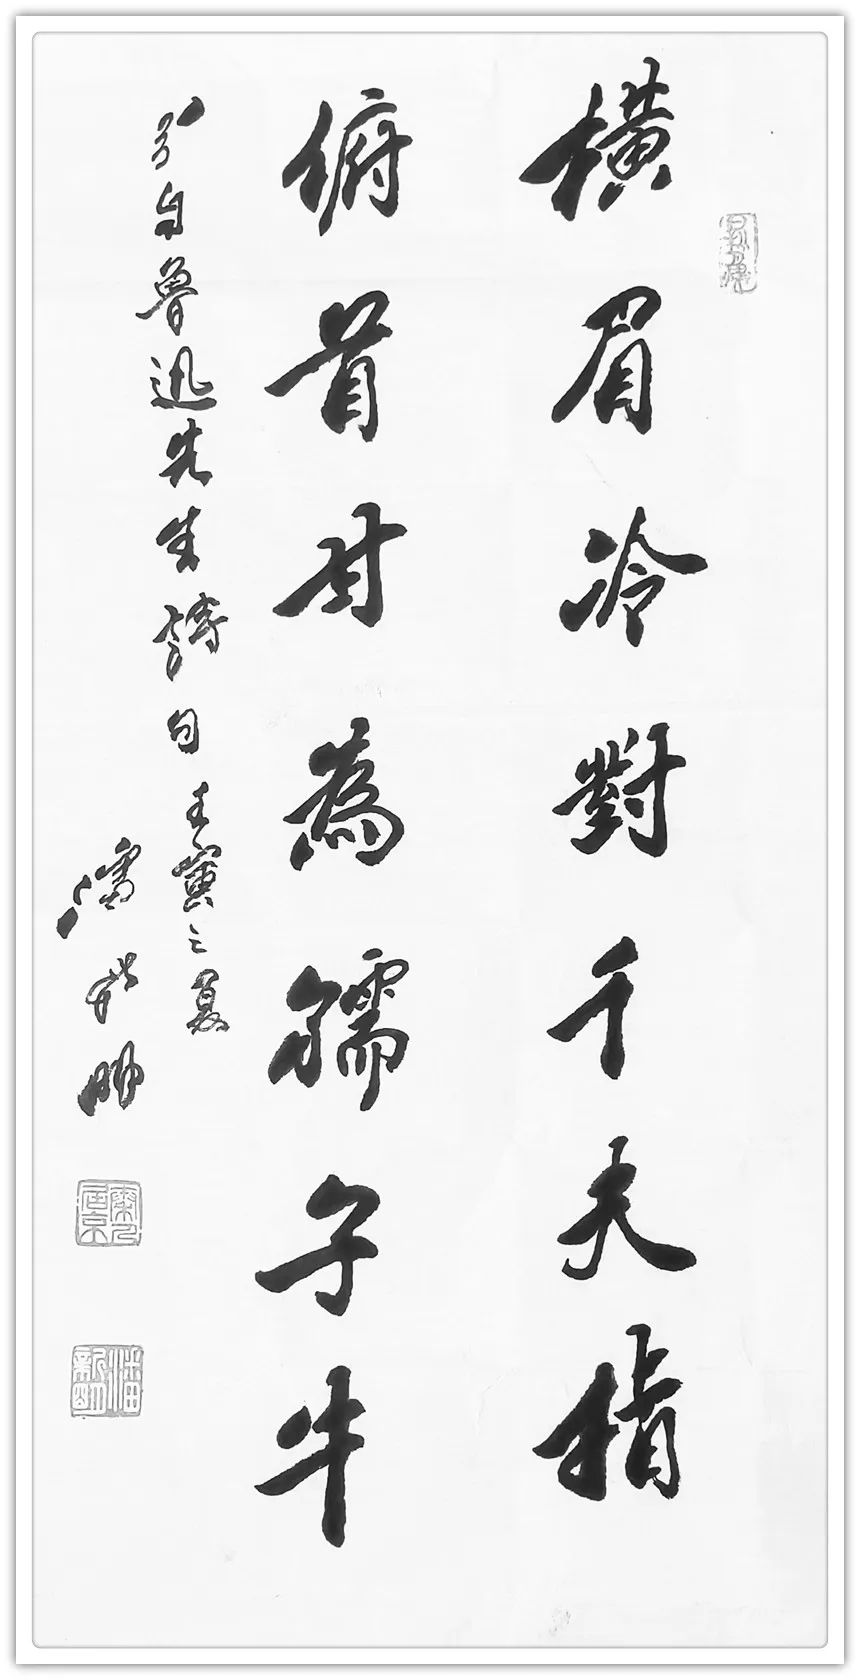 橫眉冷對千夫指
俯首甘為孺子牛
引自魯迅先生詩句壬寅之夏
潘新明
潘新明